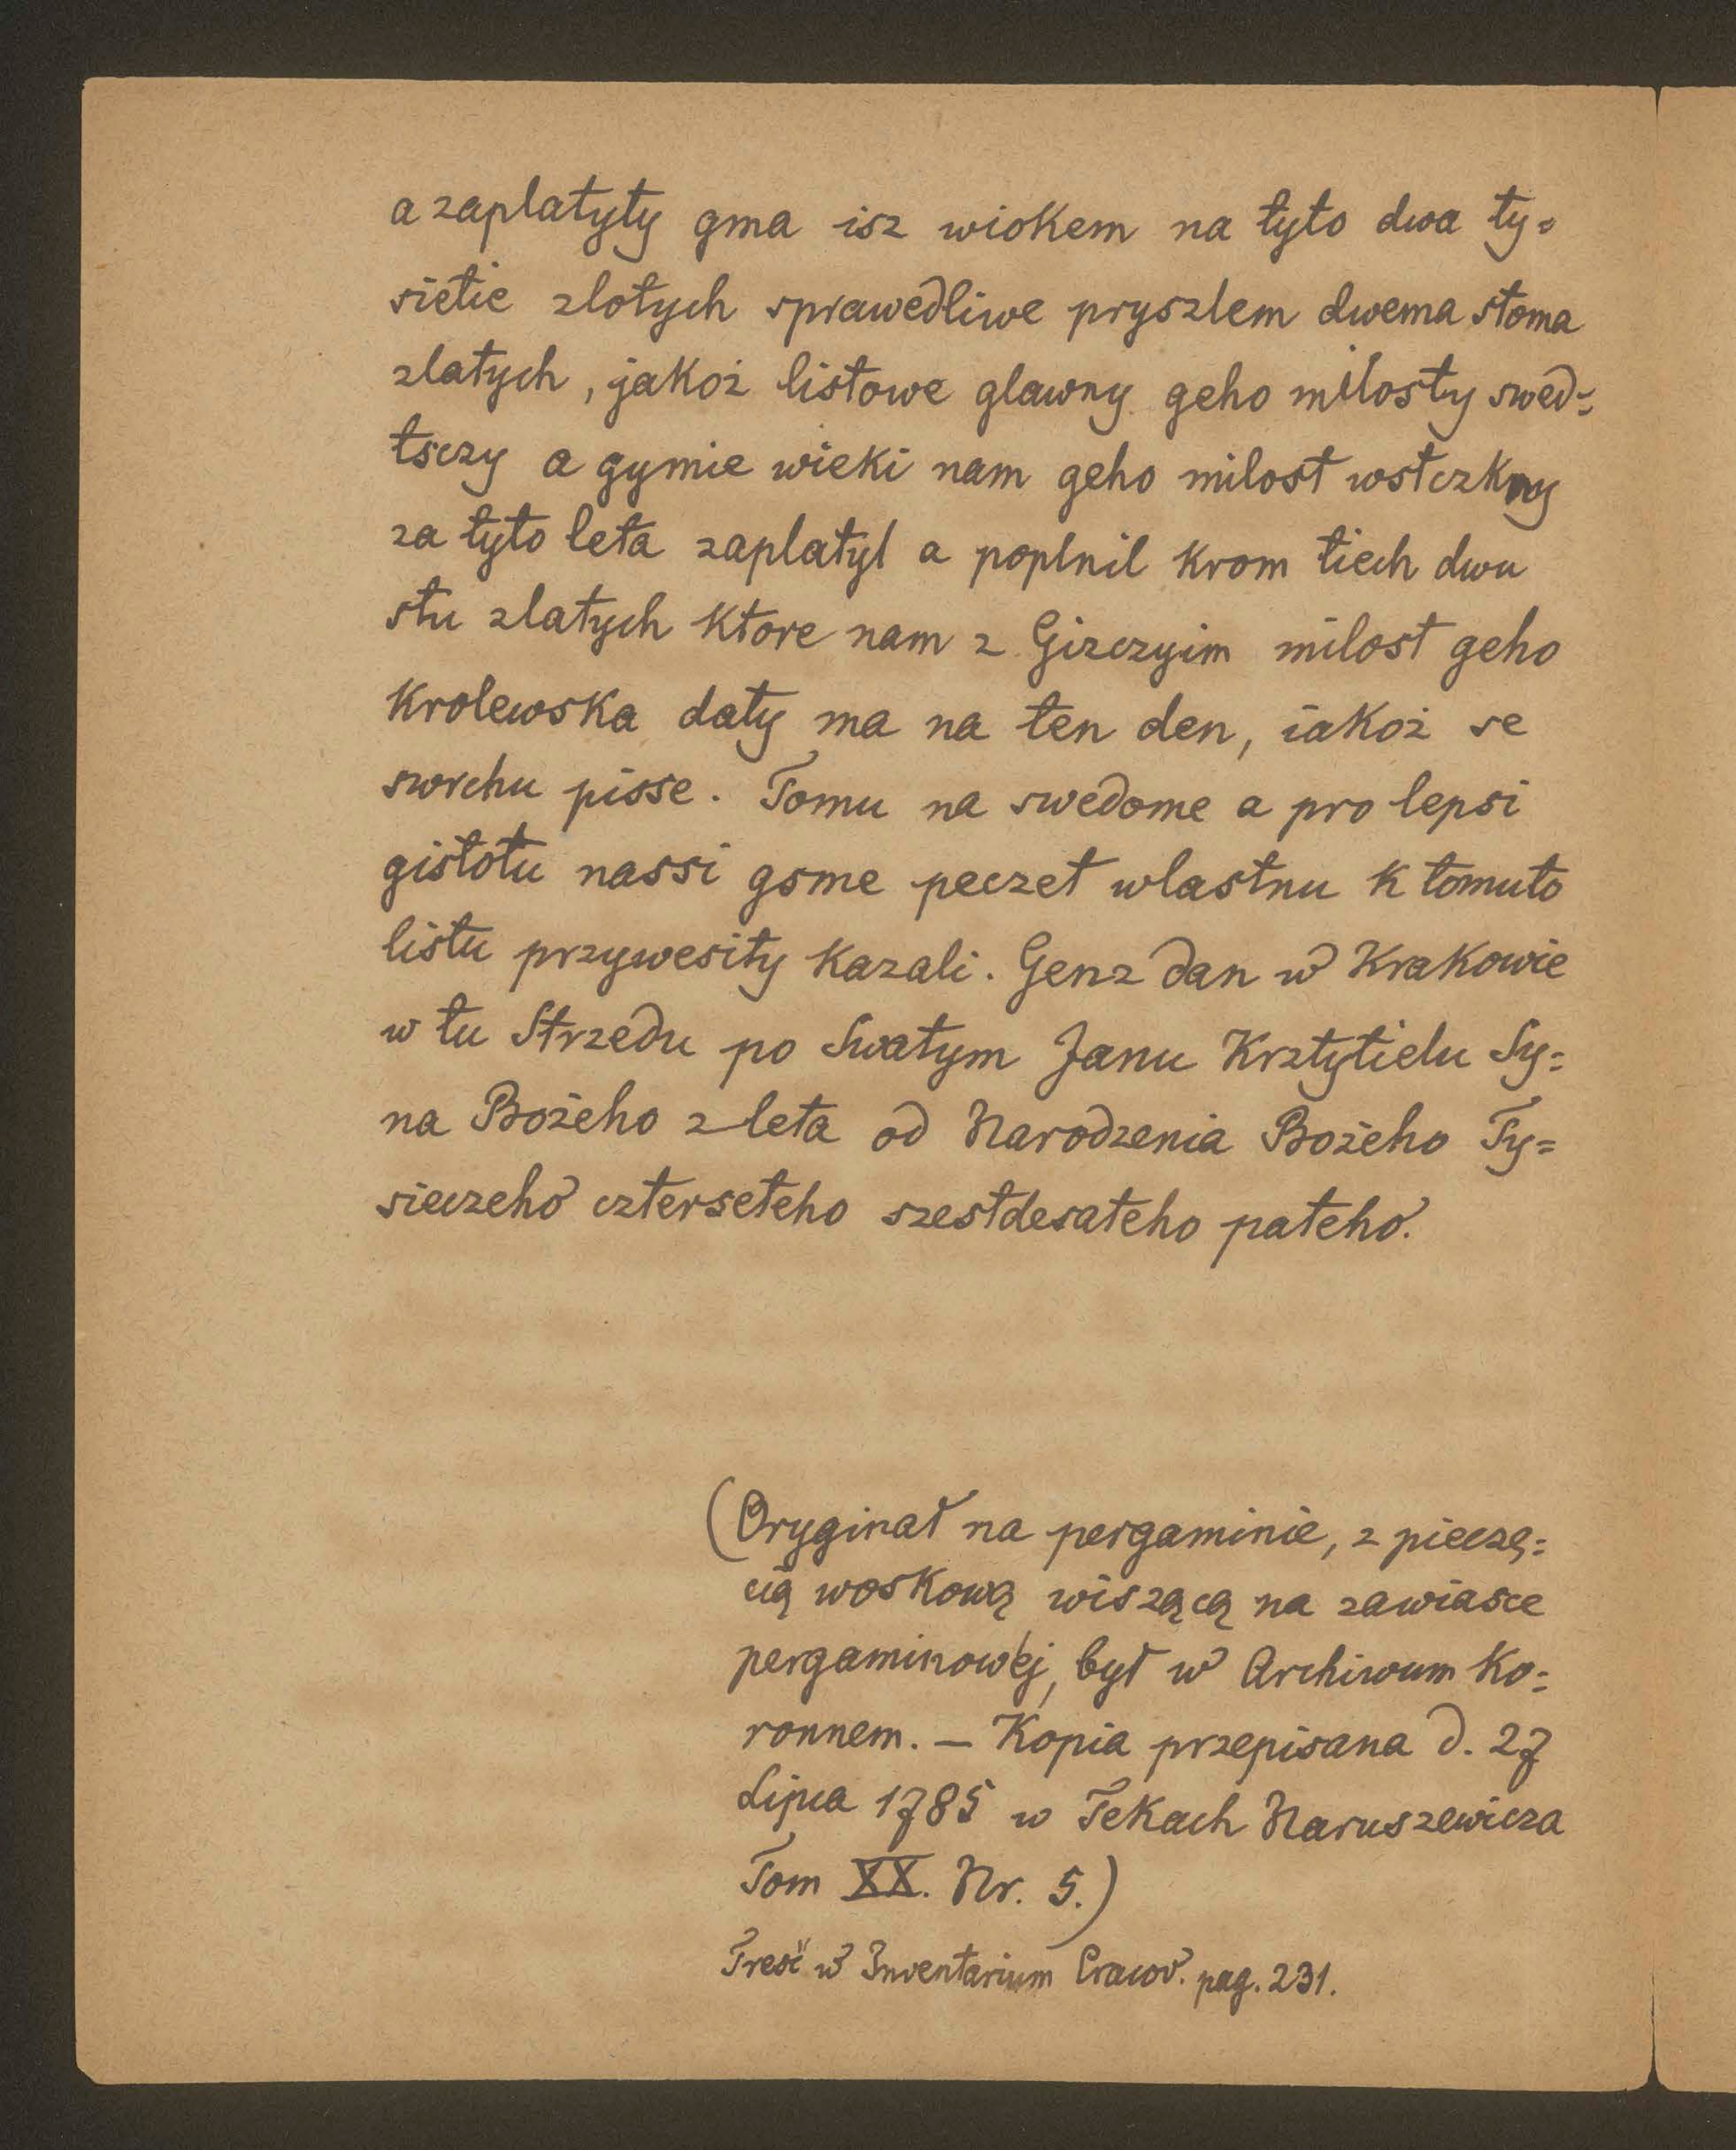 a zaplatyty gma isz wiokem na tyto dwa ty=
sietie zlotych sprawedliwe pryszlem dwema stoma
zlatych, jakoż listowe glawny geho milosty swed=
tsczy a gymie wieki nam geho milost wstczkny
za tyto leta zaplatyl a poplnil krom tiech dwu
stu zlatych ktore nam z Gizczyim milost geho
Krolewska daty ma na ten den, iakoż se
swrchu pisse. Tomu na swedome a pro lepsi
gistotu nassi gsme peczet wlastnu k tomuto
listu przywesity kazali. Genz dan w Krakowie
w tu Strzedu po Swatym Janu Krztytielu Sy=
na Bożeho z leta od Narodzenia Bożeho Ty=
sieczeho czterseteho szestdesateho pateho.
(Oryginał na pergaminie, z pieczę=
cią woskową wiszącą na zawiasce
pergaminowéj, był w Archiwum Ko=
ronnem. — Kopia przepisana d. 27
Lipca 1785 w Tekach Naruszewicza
Tom XX. Nr. 5.)
Treść w Inventarium Cracov. pag. 231.